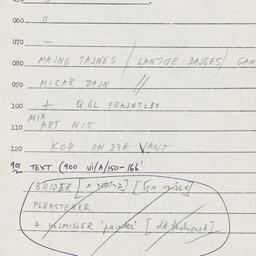 060 0
070 –
080 MAJNE TAJNES / LANTGE DAJGES / GAN
090 MICAR ZAJN //
100 + QGL FRAJNTLBX
MIR
110 ART NIT
120 KOP ON DBR VANT
901 TEXT (900 VI/A/150-166'
BRIDER
PLBASTERER
A 'painter' [old fashioned]